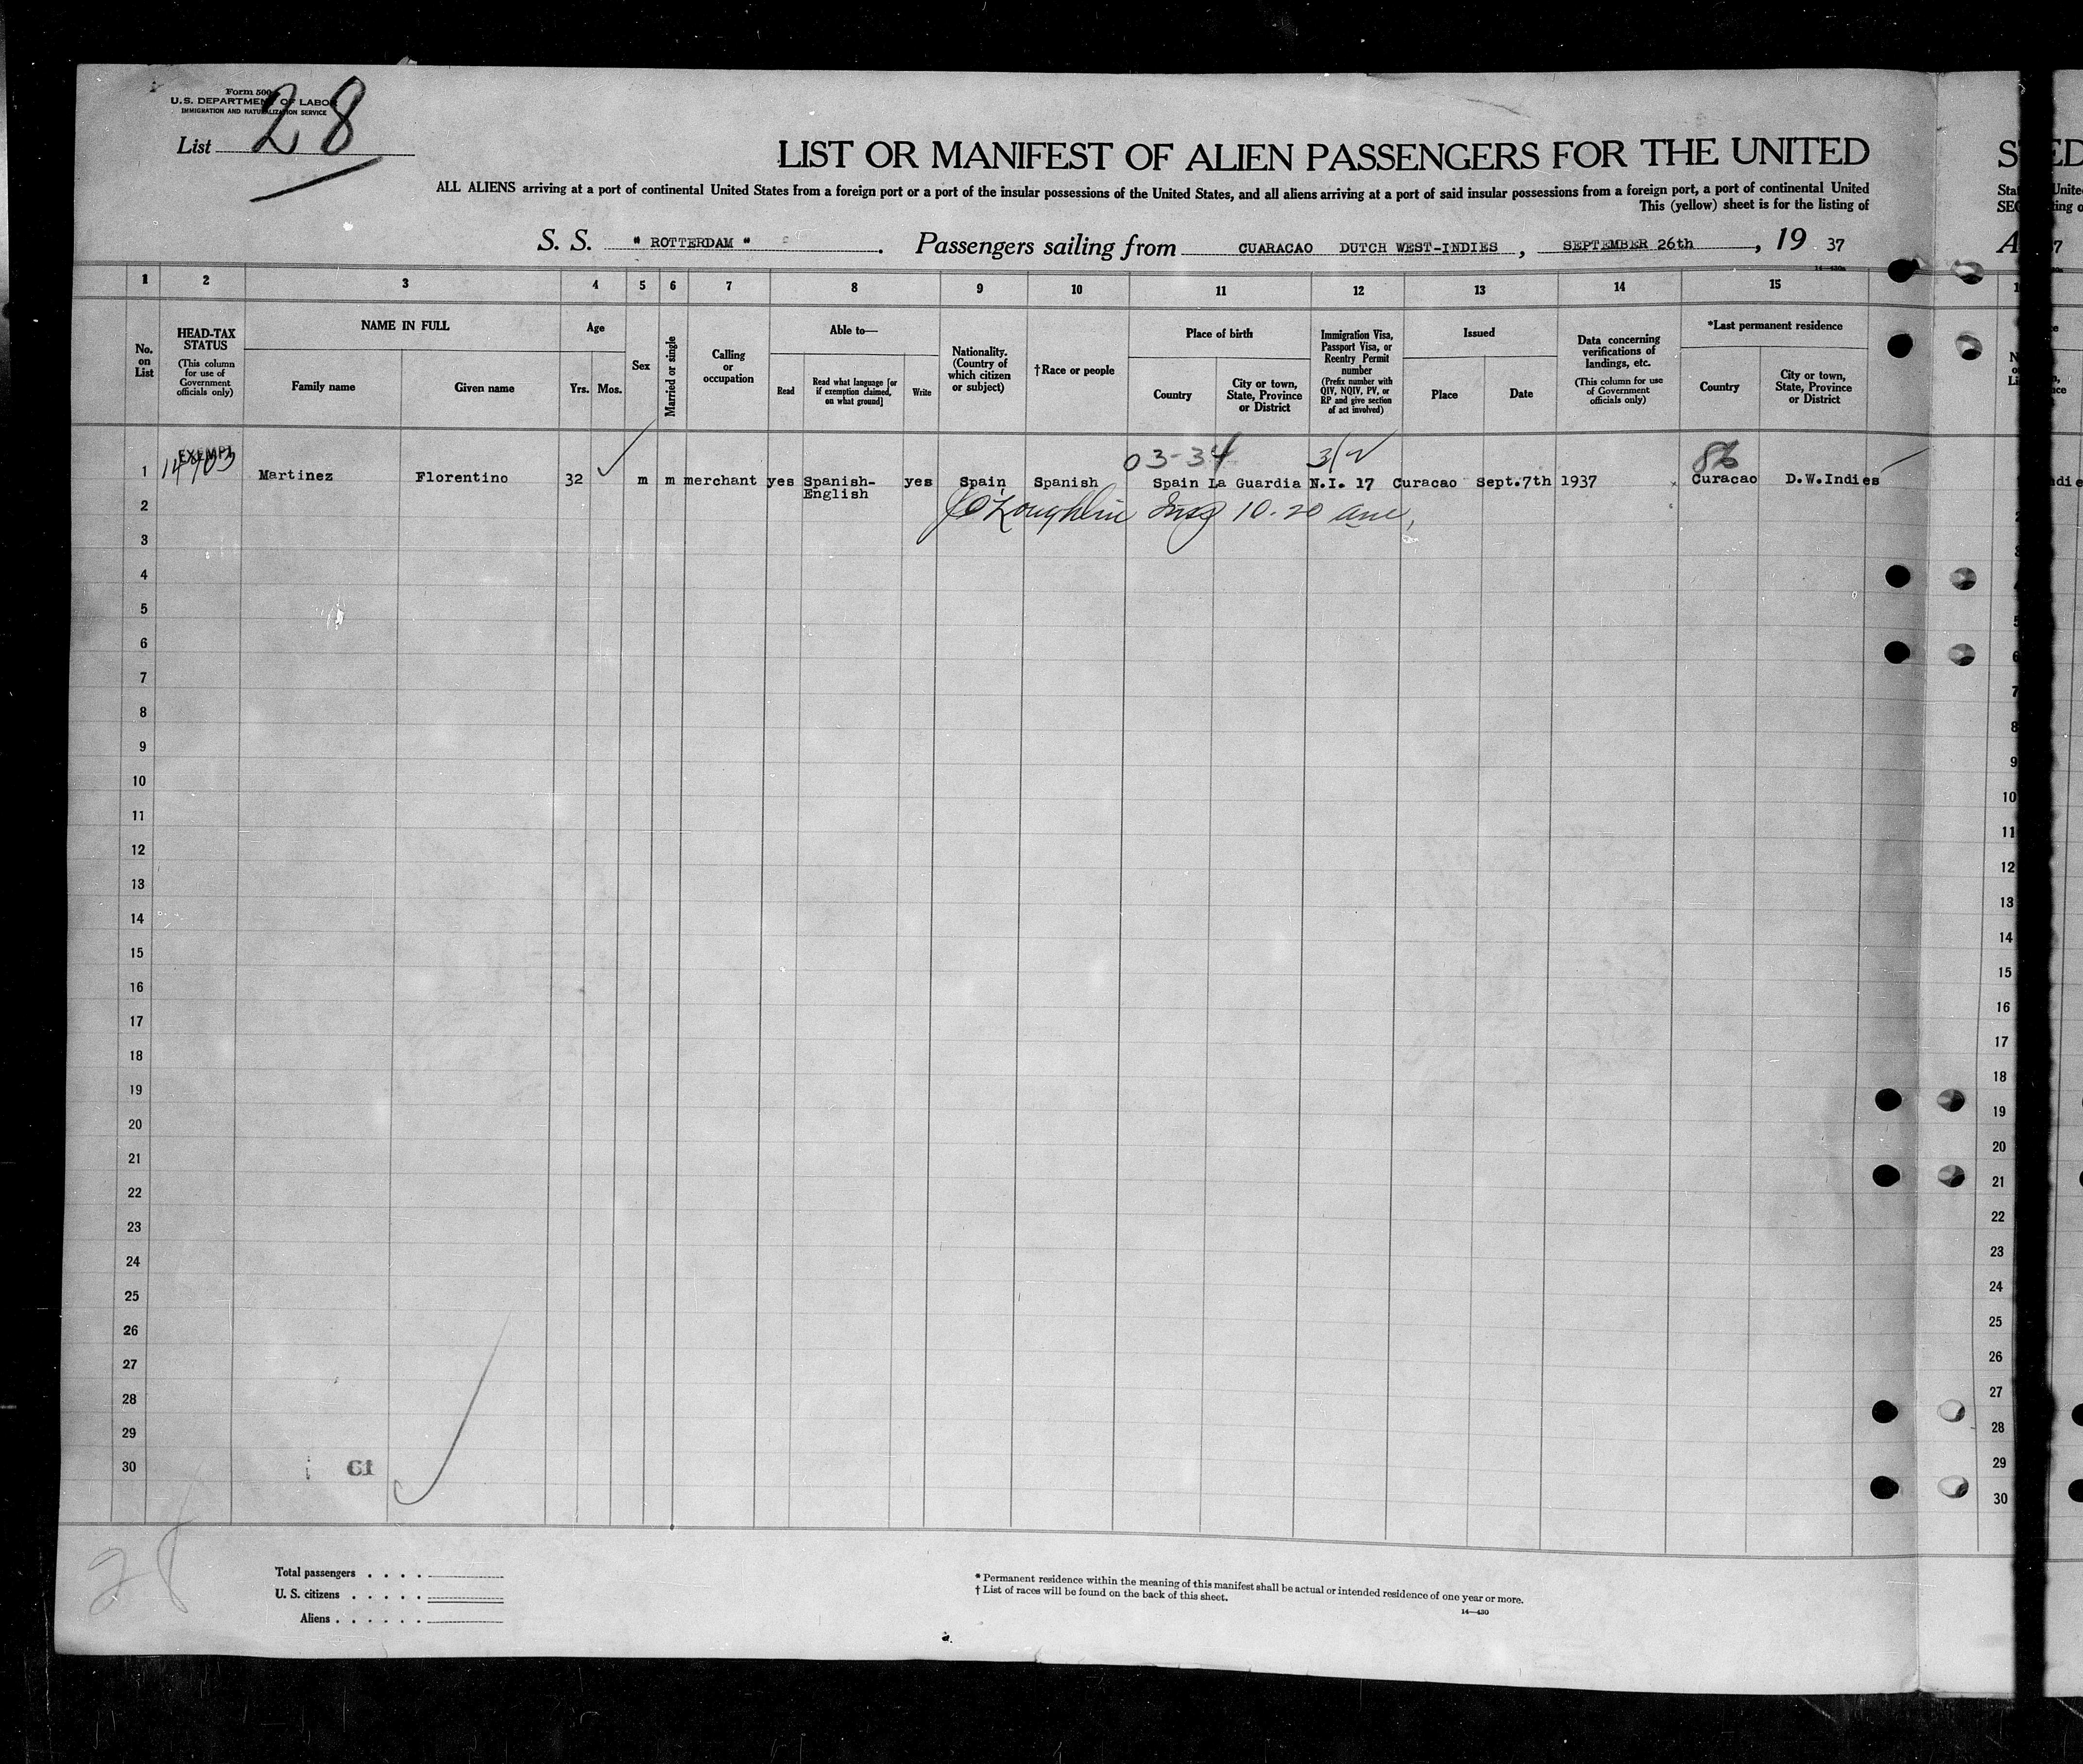 Form 500
U.S. DEPARTMENT OF LABOR
IMMIGRATION AND NATURALIZATION SERVICE
List 28
LIST OR MANIFEST OF ALIEN PASSENGERS FOR THE UNITED
ALL ALIENS arriving at a port of continental United States from a foreign port or a port of the insular possessions of the United States, and all aliens arriving at a port of said insular possessions from a foreign port, a port of continental United
This (yellow) sheet is for the listing of
S. S. " ROTTERDAM " . Passengers sailing from CUARACAO DUTCH WEST-INDIES , SEPTEMBER 26th , 19 37
1 2 3 4 5 6 7 8 9 10 11 12 13 14 15
No. on List
HEAD-TAX STATUS
(This column for use of Government officials only)
NAME IN FULL
Family name
Given name
Age
Yrs. Mos.
Sex
Married or single
Calling or occupation
Able to—
Read
Read what language [or if exemption claimed, on what ground]
Write
Nationality. (Country of which citizen or subject)
†Race or people
Place of birth
Country
City or town, State, Province or District
Immigration Visa, Passport Visa, or Reentry Permit number
(Prefix number with QIV, NQIV, PV, or RP and give section of act involved)
Issued
Place
Date
Data concerning verifications of landings, etc.
(This column for use of Government officials only)
*Last permanent residence
Country
City or town, State, Province or District
EXEMPT
03-34 3/2 86
1 Martinez Florentino 32 m m merchant yes Spanish- yes Spain Spanish Spain La Guardia N.I. 17 Curacao Sept.7th 1937 Curacao D.W.Indies
English
2 J O'Loughlin Insp 10-20
3
4
5
6
7
8
9
10
11
12
13
14
15
16
17
18
19
20
21
22
23
24
25
26
27
28
29
30
28
Total passengers . . . .
U. S. citizens . . . . .
Aliens . . . . . .
* Permanent residence within the meaning of this manifest shall be actual or intended residence of one year or more.
† List of races will be found on the back of this sheet.
14—430